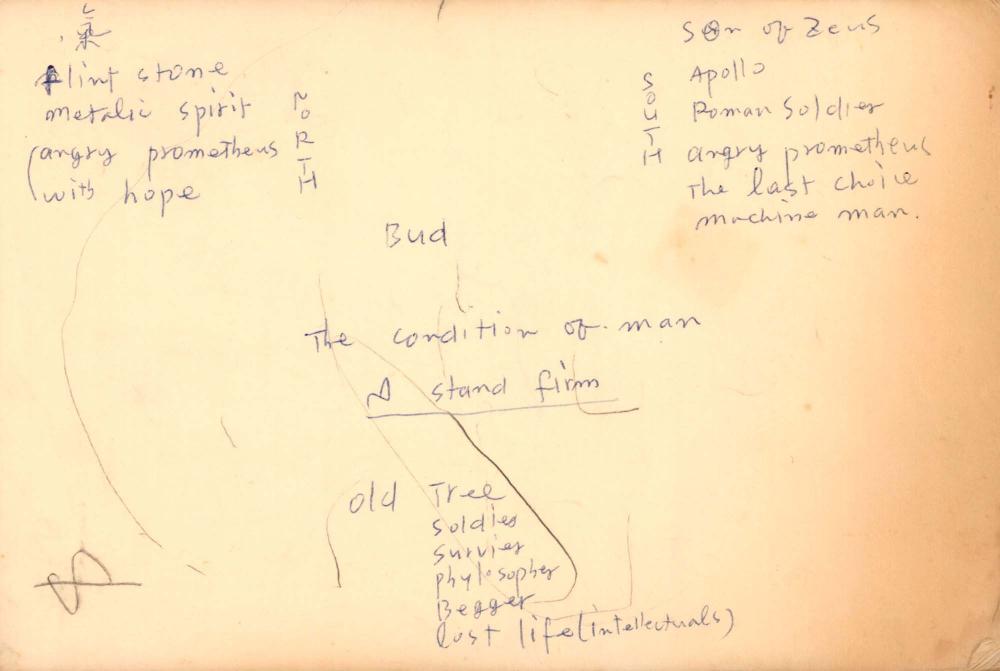 氣
flint stone
metalic spirit
(angry prometheus
with hope
NORTH
Son of Zeus
Apollo
Roman Soldier
angry prometheus
The last choice
machine man.
SOUTH
Bud
The condition of man
stand firm
old Tree
soldier
survier
phylosopher
Begger
lost life (intellectuals)